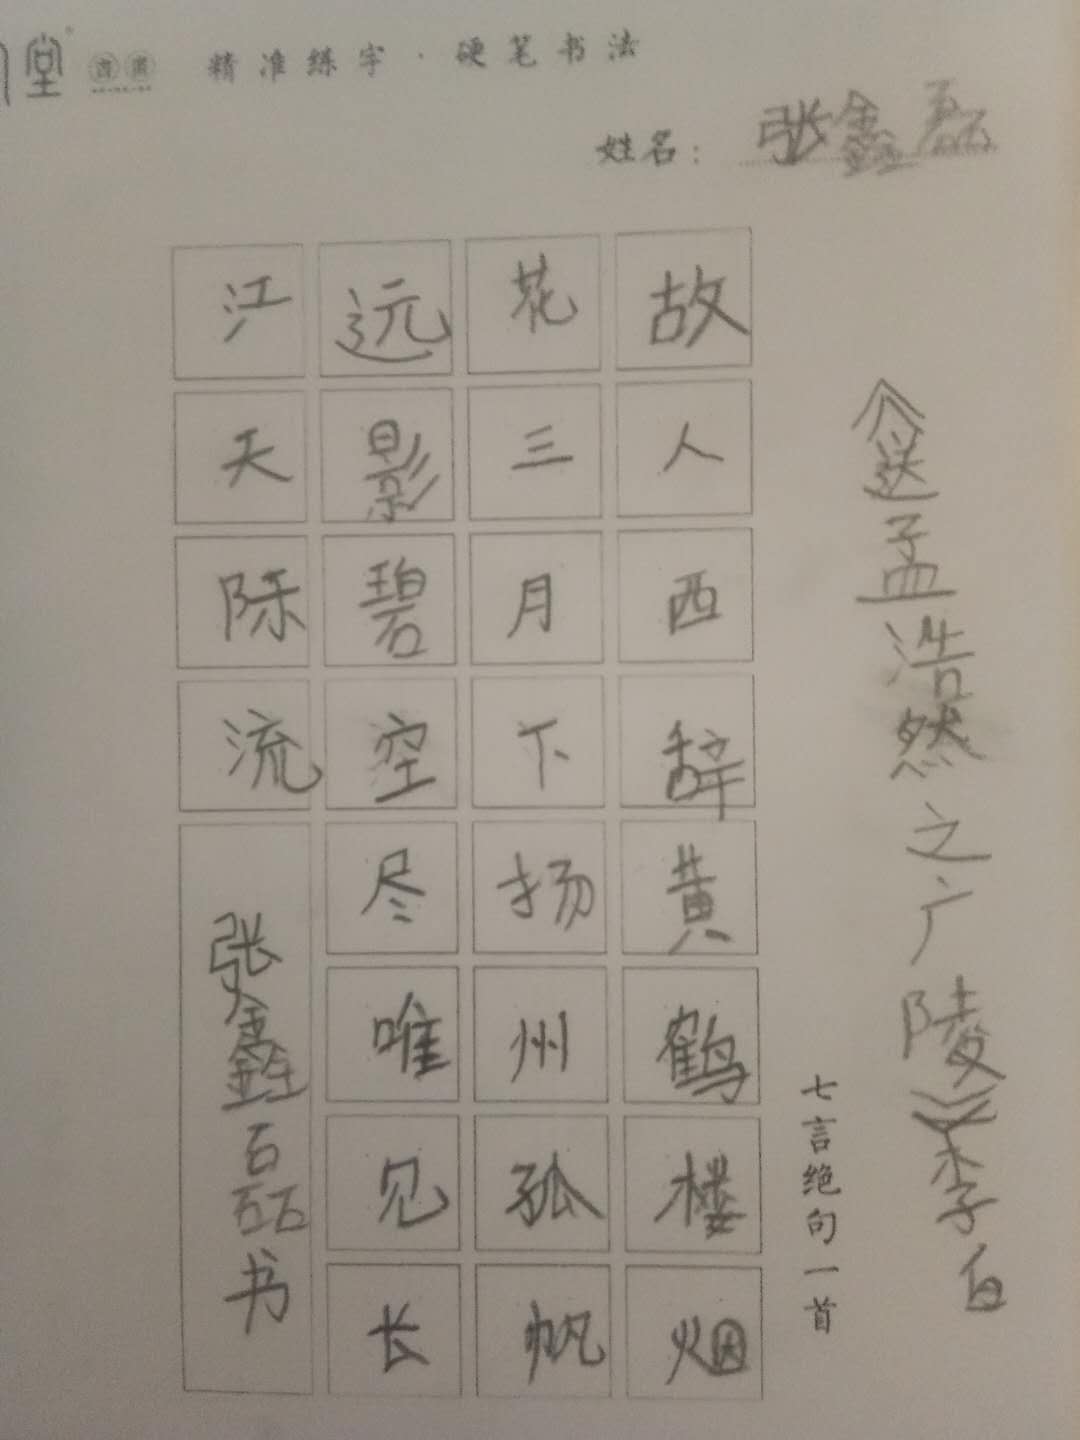 堂
精准练字·硬笔书法
姓名：张鑫磊
《送孟浩然之广陵》李白
七言绝句一首
故人西辞黄鹤楼烟
花三月下扬州孤帆
远影碧空尽唯见长
江天际流
张鑫磊书